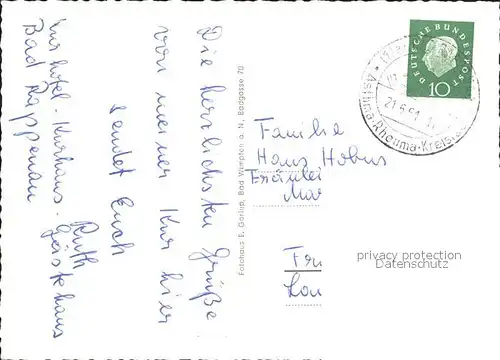 Die herzlichsten Grüße
von meiner Kur hier
sendet Euch
Ruth
Kurhotel - Kurhaus - Gästehaus
Bad Rappenau
Fotohaus E. Gorlup, Bad Wimpfen a. N., Badgasse 70
DEUTSCHE BUNDESPOST
10
21.6.61
Asthma-Rheuma-Kreis
Familie
Hans Hobus
Fräulei
Mar
privacy protection
Datenschutz